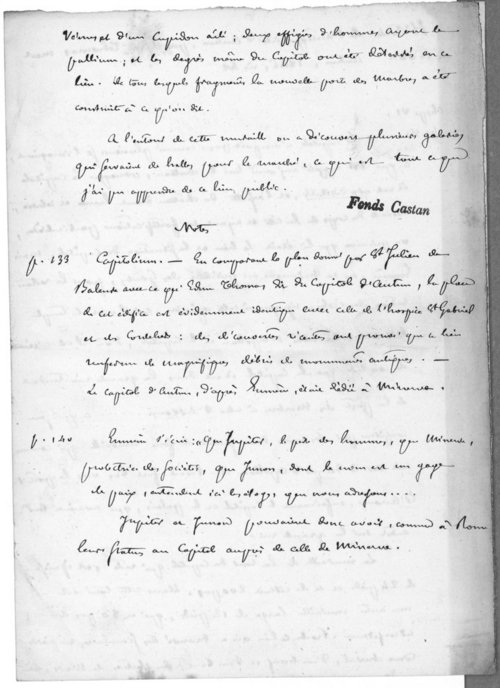 Vénus et d'un Cupidon ailé ; deux effigies d'hommes ayant le
pallium ; et les degrés même du Capitole ont été déterrés en ce
lieu. De tous lesquels fragments la nouvelle porte des Marbres a été
construite à ce qu'on dit.
A l'entour de cette muraille on a découvert plusieurs galeries
qui servaient de halles pour le marché, ce qui est tout ce que
j'ai pu apprendre de ce lieu public.
Fonds Castan
Notes
p. 133 Capitolium. — En comparant le plan donné par St Julien de
Baleure avec ce que Edme Thomas dit du Capitole d'Autun, la place
de cet édifice est évidemment identique avec celle de l'hospice St Gabriel
et des Cordeliers : des découvertes récentes ont prouvé que ce lieu
renferme de magnifiques débris de monuments antiques. —
Le capitole d'Autun, d'après Eumène, était dédié à Minerve.
p. 140 Eumène s'écrie : « Que Jupiter, le père des hommes, que Minerve,
protectrice des Sociétés, que Junon, dont le nom est un gage
de paix, entendent ici les éloges, que nous adressons....
Jupiter et Junon pouvaient donc avoir, comme à Rome
leurs statues au Capitole auprès de celle de Minerve.